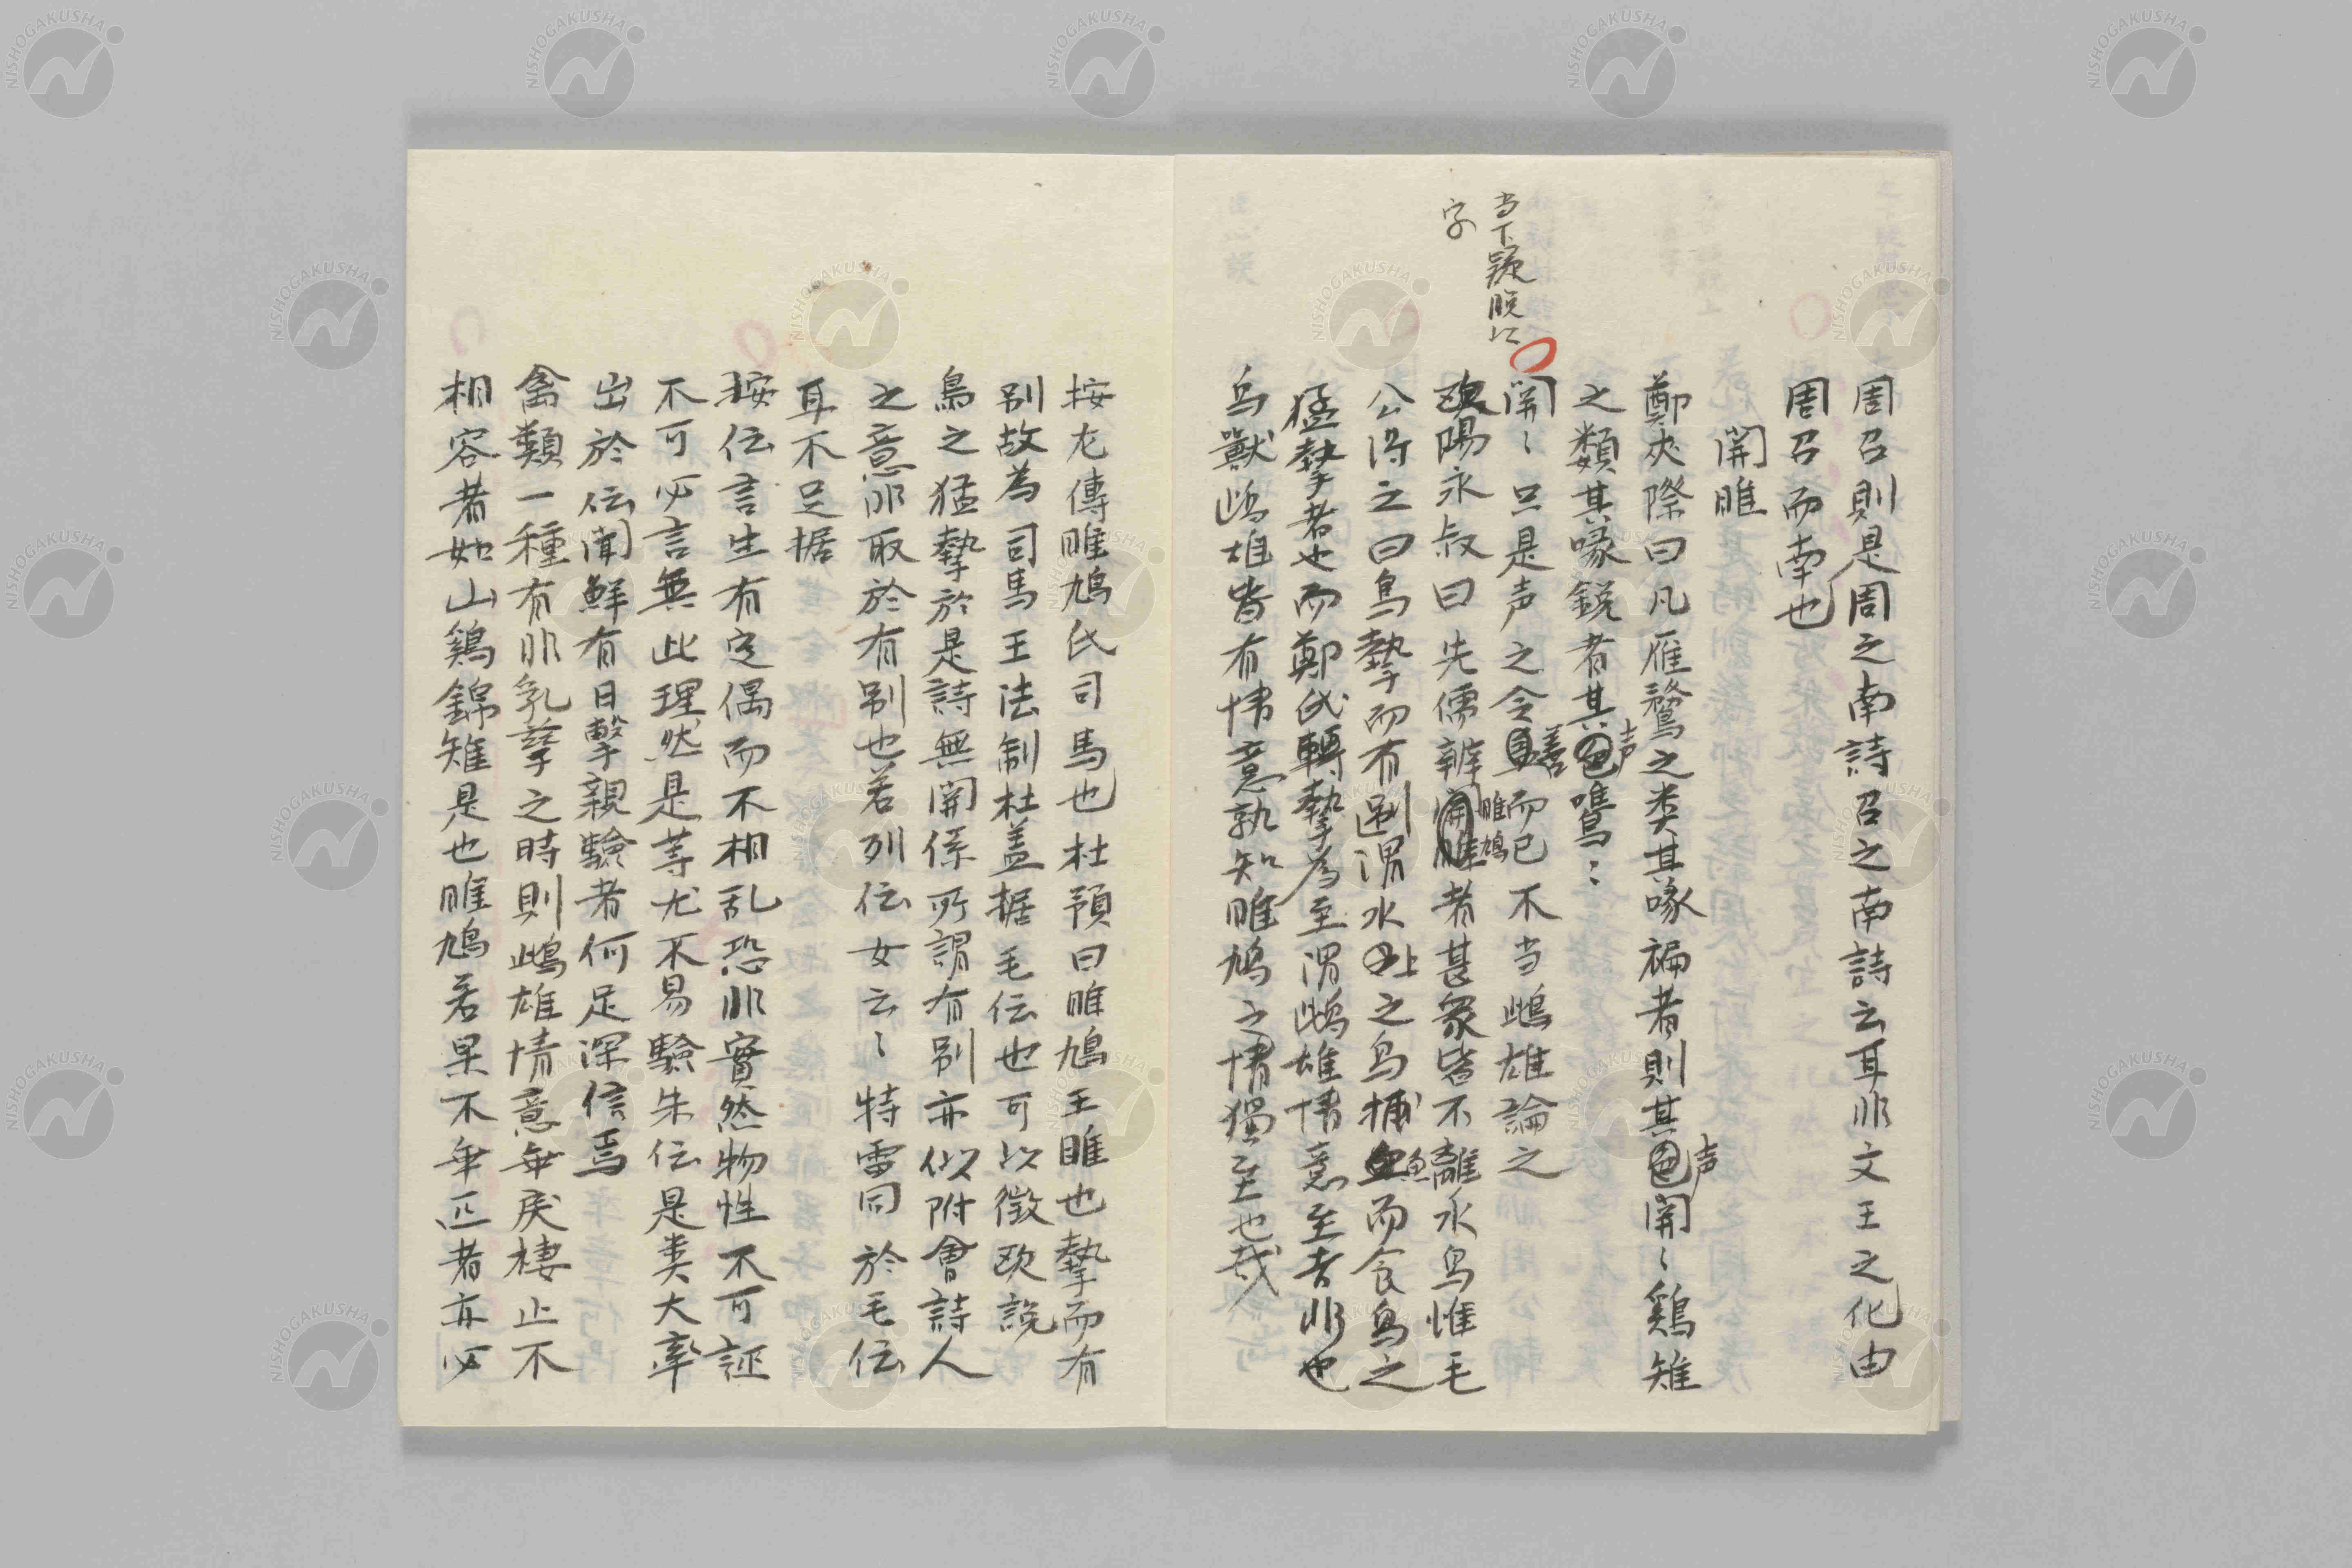 周召則是周之南詩召之南詩云耳非文王之化由
周召而南也
関雎
鄭夾際曰凡雁鶩之类其喙褊者則其声関〻鶏雉
之類其喙鋭者其声鷕〻
当下疑脱以
字
関〻只是声之令善而已不当雌雄論之
欧陽永叔曰先儒辨雎鳩者甚衆皆不離水鳥惟毛
公得之曰鳥摯而有別謂水上之鳥捕魚而食鳥之
猛摯者也而鄭氏轉摯為至謂雌雄情意至者非也
鳥獸雌雄皆有情意孰知雎鳩之情獨至也哉
按左傳雎鳩氏司馬也杜預曰雎鳩王雎也摯而有
別故為司馬王法制杜盖据毛伝也可以徴欧説
鳥之猛摯於是詩無関係所謂有別亦似附會詩人
之意非取於有別也若列伝女云〻特雷同於毛伝
耳不足据
按伝言生有定偶而不相乱恐非實然物性不可誣
不可必言無此理然是等尤不易驗朱伝是类大率
出於伝聞鮮有目擊親驗者何足深信焉
禽類一種有非乳孳之時則雌雄情意毎戻棲止不
相容者如山鶏錦雉是也雎鳩若果不毎匹者亦必
NISHOGAKUSHA